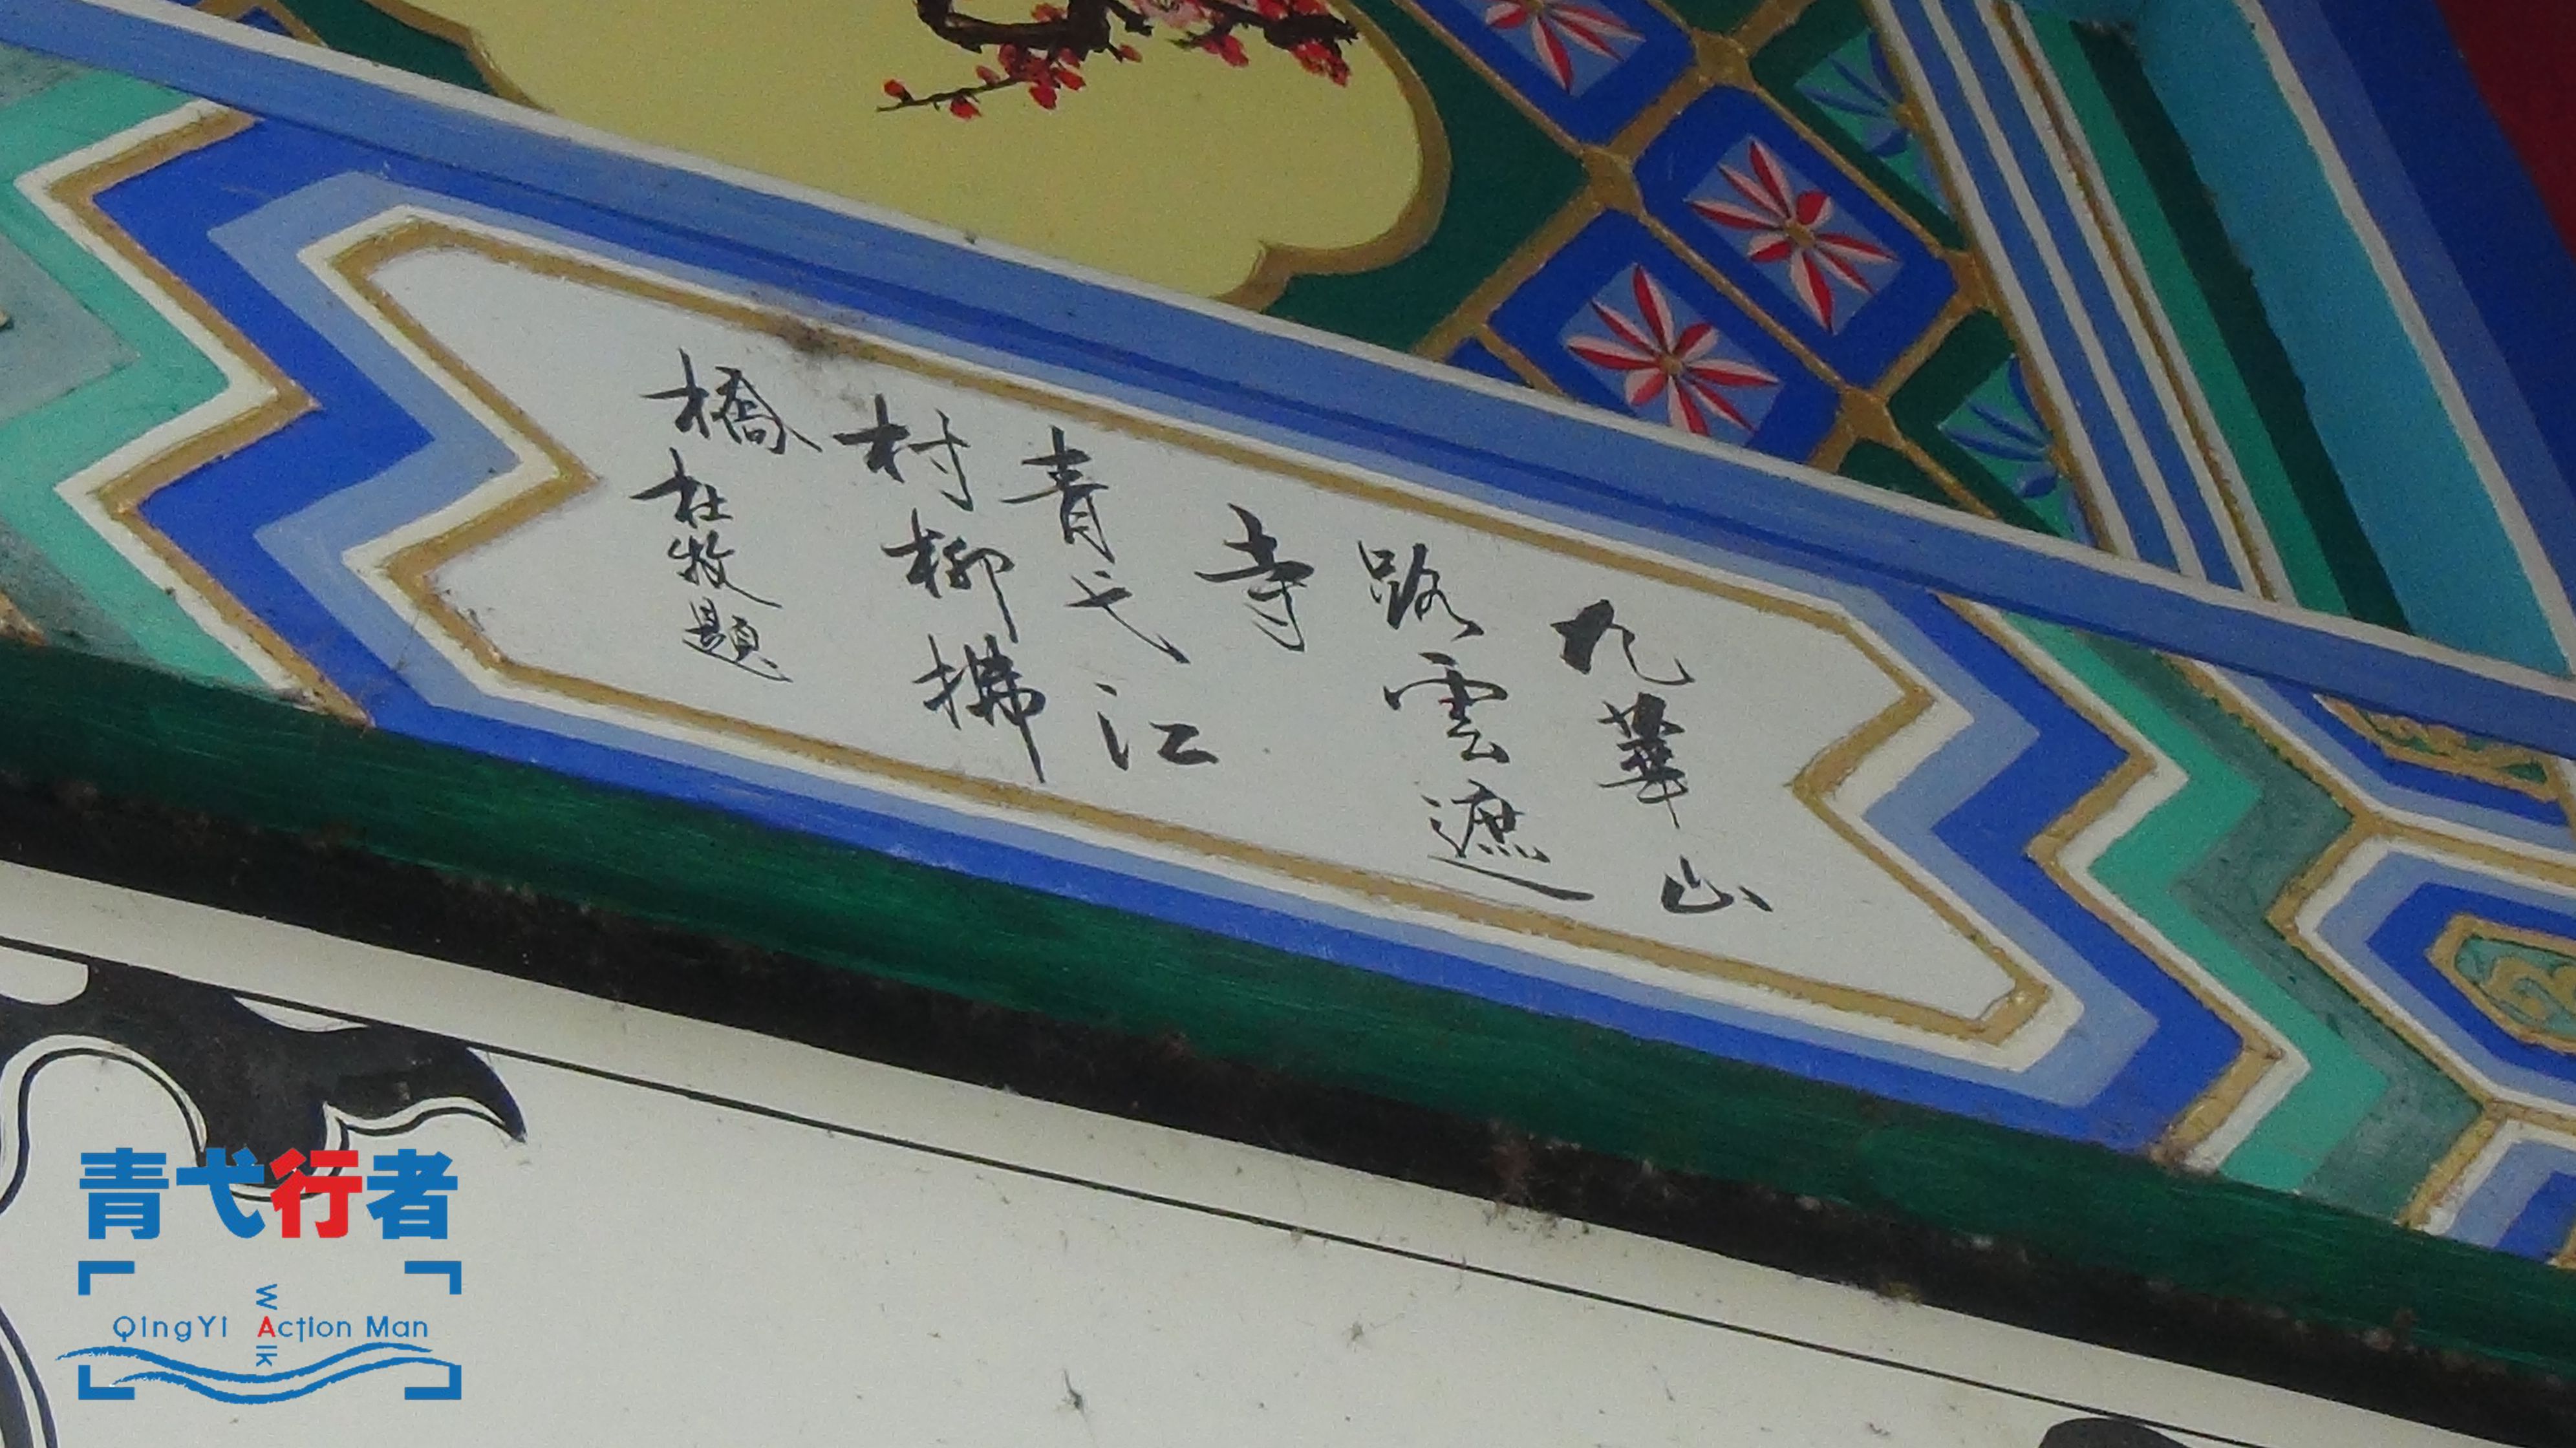 九華山
路雲遮
寺
青弋江
村柳拂
橋
杜牧題
青弋行者
QingYi Action Man
Walk